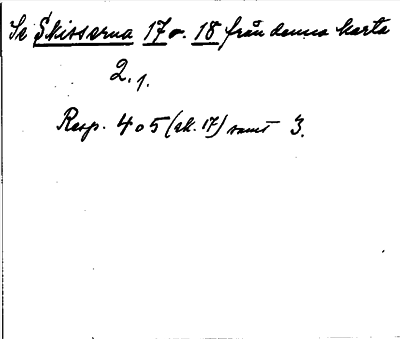 Se Skisserna 17 o. 18 från denna karta
2. 1.
Resp. 4 o 5 (sk. 17) samt 3.